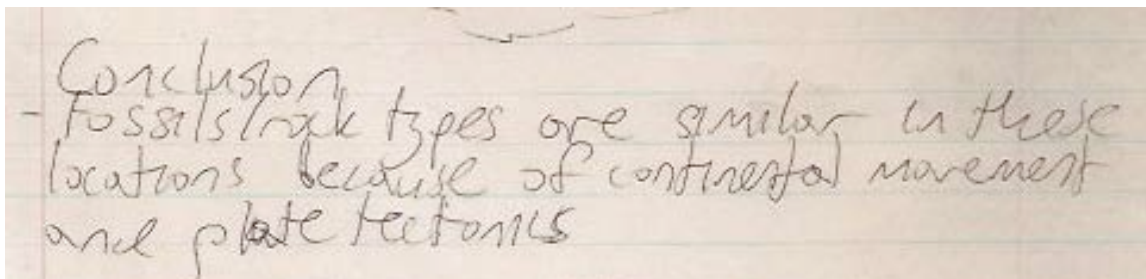 Conclusion
- Fossils/rock types are similar in these
locations because of continental movement
and plate tectonics